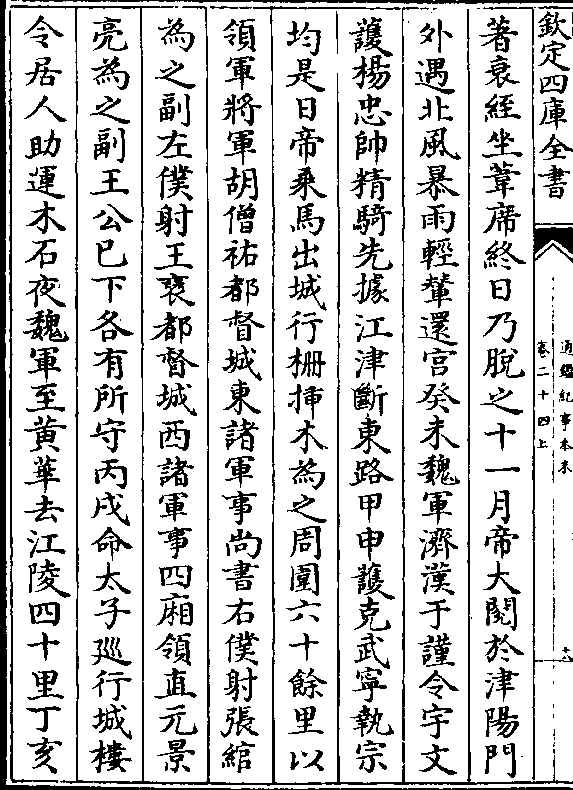 欽定四庫全書
通鑑紀事本末
卷二十四上
十九
著衰絰坐葦席終日乃脫之十一月帝大閱於津陽門
外遇北風暴雨輕輦還宮癸未魏軍濟漢于謹令宇文
護楊忠帥精騎先據江津斷東路甲申護克武寧執宗
均是日帝乘馬出城行柵插木為之周圍六十餘里以
領軍將軍胡僧祐都督城東諸軍事尚書右僕射張綰
為之副左僕射王襃都督城西諸軍事四廂領直元景
亮為之副王公已下各有所守丙戌命太子廵行城樓
令居人助運木石夜魏軍至黃華去江陵四十里丁亥